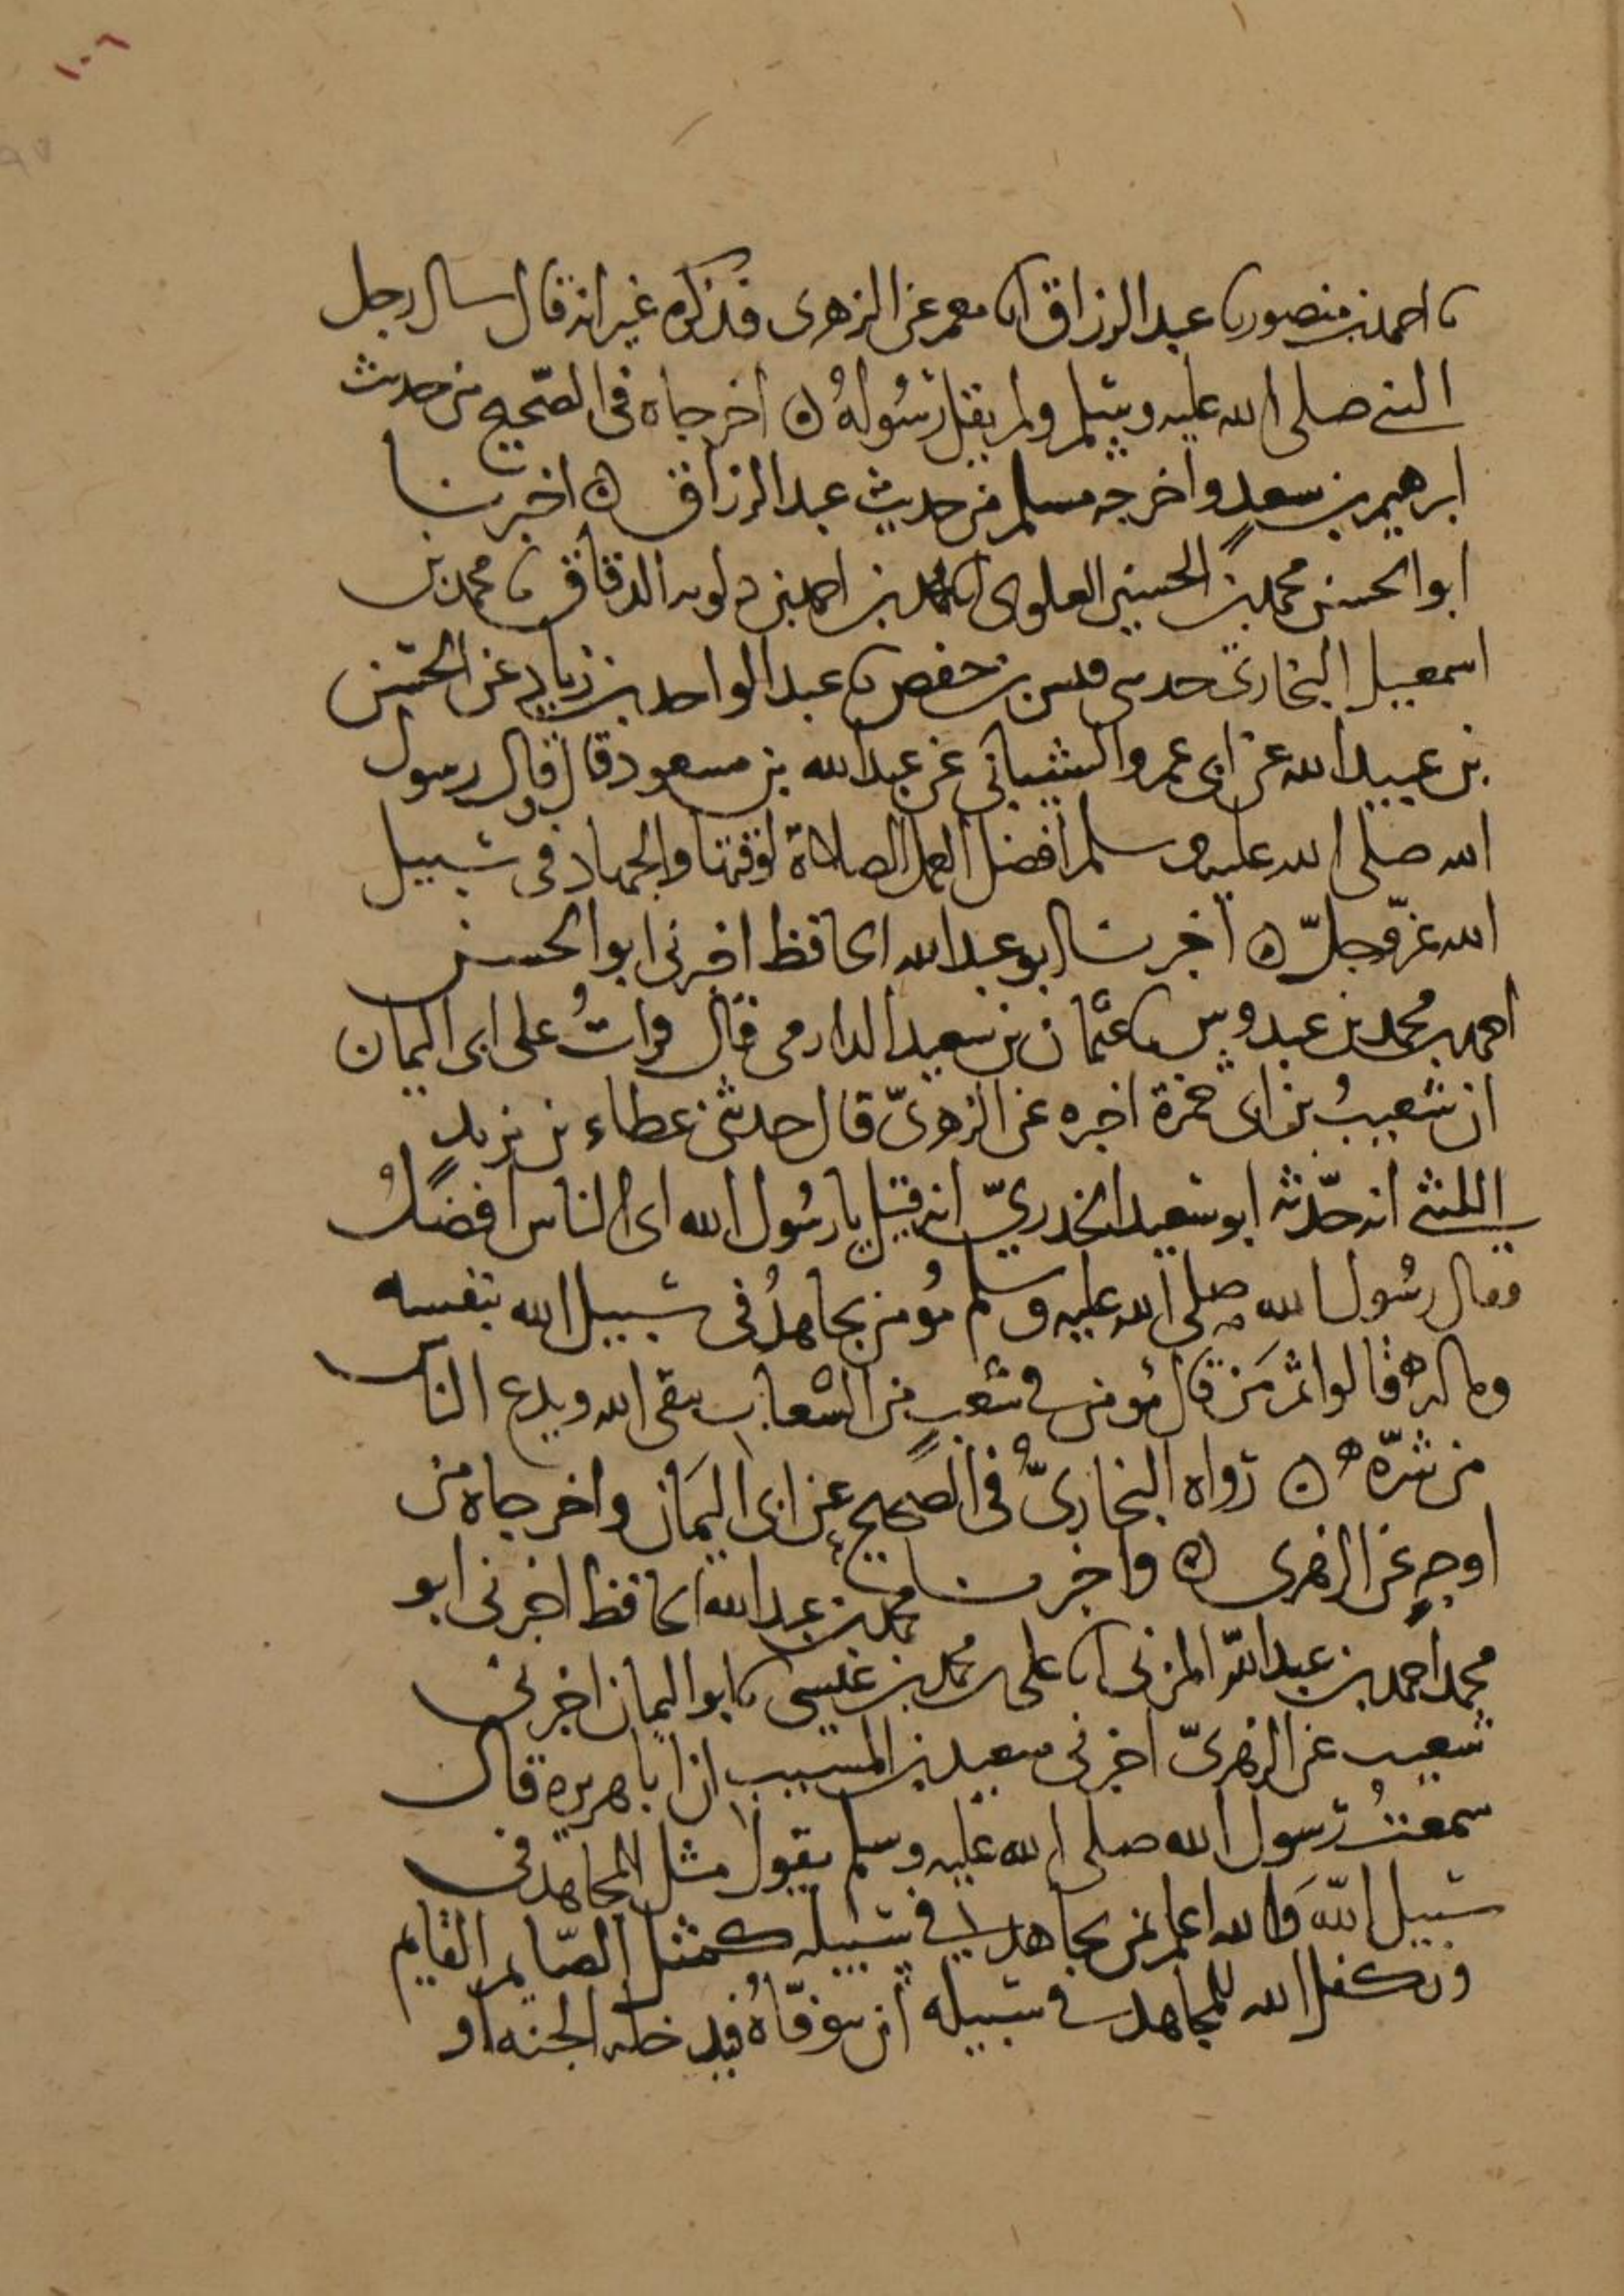 ١٠٦
ثنا احمد بن منصور ثنا عبد الرزاق انا معمر عن الزهرى فذكره غير انه قال سال رجل
النبي صلى الله عليه وسلم ولم يقل رسوله ه اخرجاه فى الصحيح من حديث
ابرهيم بن سعد واخرجه مسلم من حديث عبد الرزاق ه اخبرنا
ابو الحسن محمد بن الحسين العلوى انا محمد بن احمد بن دلويه الدقاق ثنا محمد بن
اسمعيل البخارى حدثنى قيس بن حفص ثنا عبد الواحد بن زياد عن الحسن
بن عبيد الله عن ابى عمرو الشيبانى عن عبد الله بن مسعود قال قال رسول
الله صلى الله عليه وسلم افضل العمل الصلاة لوقتها والجهاد فى سبيل
الله عزّ وجلّ ه اخبرنا ابو عبد الله الحافظ اخبرنى ابو الحسن
احمد بن محمد بن عبدوس ثنا عثمان بن سعيد الدارمى قال قراتُ على ابى اليمان
ان شعيبُ بن ابى حمزة اخبره عن الزهرىّ قال حدثنى عطاء بن يزيد
الليثى انه حدّثه ابو سعيد الخدرىّ انه قيل يا رسُول الله اى الناس افضلُ
فقال رسُول الله صلى الله عليه وسلم مُؤمن يجاهدُ فى سبيل الله بنفسه
وماله قالوا ثم مَن قال مؤمن فى شعبٍ من الشعاب يتقى الله ويدع الناس
من شرّه ه رواه البخارىّ فى الصحيح عن ابى اليمان واخرجاه من
اوجهٍ عن الزهرى ه واخبرنا محمد بن عبد الله الحافظ اخبرنى ابو
محمد احمد بن عبد الله المزنى انا على بن محمد بن عيسى ثنا ابو اليمان اخبرنى
شعيب عن الزهرىّ اخبرنى سعيد بن المسيب ان ابا هريره قال
سمعتُ رسول الله صلى الله عليه وسلم يقول مثل المجاهد فى
سبيل الله وَالله اعلم بمن يجاهد فى سبيله كمثل الصّايم القايم
وتكفل الله للمجاهد فى سبيله ان يتوفّاهُ فيدخله الجنه او